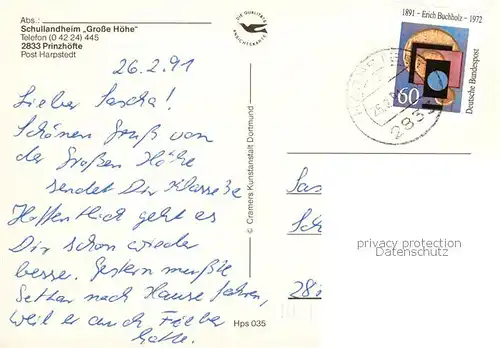 Abs.:
Schullandheim „Große Höhe"
Telefon (0 42 24) 445
2833 Prinzhöfte
Post Harpstedt
DIE QUALITÄTS
ANSICHTSKARTE
1891 - Erich Buchholz - 1972
60
Deutsche Bundespost
2833
26.2.91
Lieber Sascha!
Schönen Gruß von
der Großen Höhe
sendet Dir Klasse 3c
Hoffentlich geht es
Dir schon wieder
besse. Gestern mußte
nach Hause fahren,
weil er auch Fieber
hatte.
© Cramers Kunstanstalt Dortmund
Hps 035
Sas
Sch
28
privacy protection
Datenschutz